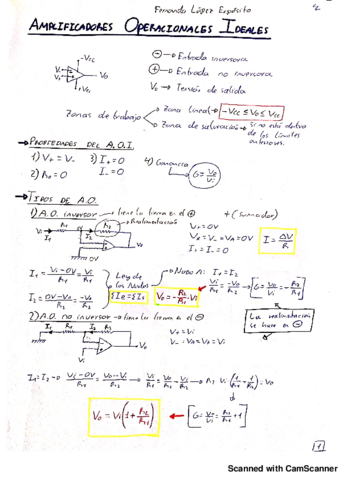 Fernando López Expósito
AMPLIFICADORES OPERACIONALES IDEALES
⊖ → Entrada inversora
⊕ → Entrada no inversora
V₀ → Tensión de salida
Zonas de trabajo
Zona lineal → -Vcc ≤ V₀ ≤ Vcc
Zona de saturación → Si no está dentro de los límites anteriores.
→ PROPIEDADES DEL A.O.I.
1) V+ = V-
3) I+ = 0
I- = 0
4) Ganancia
G = V₀/Vi
2) R₀ = 0
→ TIPOS DE A.O.
1) A.O. inversor → tiene la tierra en el ⊕
+ (sumador)
Realimentación
V+ = 0V
I+ = I- = 0
I = ΔV/R
I₁ = (Vi - 0V)/R₁ = Vi/R₁
Ley de los Nudos
ΣIe = ΣIs
Nudo A: I₁ = I₂
I₂ = (0V - V₀)/R₂ = -V₀/R₂
V₀ = -R₂/R₁ · Vi
Vi/R₁ = -V₀/R₂ → [G = V₀/Vi = -R₂/R₁]
2) A.O. no inversor → tiene la tierra en el ⊖
La realimentación se hace en ⊖
V+ = Vi
V- = VA = V₀ = Vi
V₀ = Vi (1 + R₂/R₁)
[G = V₀/Vi = R₂/R₁ + 1]
1
Scanned with CamScanner